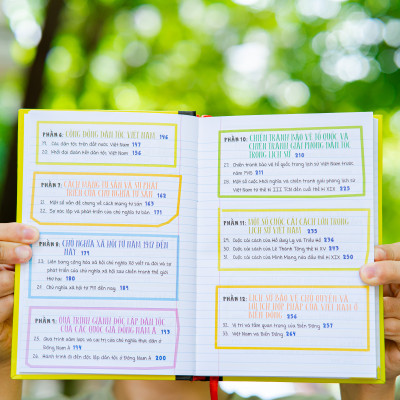 PHẦN 6: CỘNG ĐỒNG DÂN TỘC VIỆT NAM 146
19. Các dân tộc trên đất nước Việt Nam 147
20. Khối đại đoàn kết dân tộc Việt Nam 156
PHẦN 7: CÁCH MẠNG TƯ SẢN VÀ SỰ PHÁT
TRIỂN CỦA CHỦ NGHĨA TƯ BẢN 162
21. Một số vấn đề chung về cách mạng tư sản 163
22. Sự xác lập và phát triển của chủ nghĩa tư bản 171
PHẦN 8: CHỦ NGHĨA XÃ HỘI TỪ 1917 ĐẾN
NAY 179
23. Liên bang cộng hòa xã hội chủ nghĩa Xô viết ra đời và sự
phát triển của chủ nghĩa xã hội sau chiến tranh thế giới
thứ hai 180
24. Chủ nghĩa xã hội từ 1991 đến nay 189
PHẦN 9: QUÁ TRÌNH GIÀNH ĐỘC LẬP DÂN TỘC
CỦA CÁC QUỐC GIA ĐÔNG NAM Á 193
25. Quá trình xâm lược và cai trị của chủ nghĩa thực dân ở
Đông Nam Á 194
26. Hành trình đi đến độc lập dân tộc ở Đông Nam Á 200
PHẦN 10: CHIẾN TRANH BẢO VỆ TỔ QUỐC VÀ
CHIẾN TRANH GIẢI PHÓNG DÂN TỘC
TRONG LỊCH SỬ 210
27. Chiến tranh bảo vệ Tổ quốc trong lịch sử Việt Nam trước
năm 1945 211
29. Một số cuộc khởi nghĩa và chiến tranh giải phóng trong lịch sử
Việt Nam từ thế kỉ III TCN đến cuối thế kỉ XIX 223
PHẦN 11: MỘT SỐ CUỘC CẢI CÁCH LỚN TRONG
LỊCH SỬ VIỆT NAM 235
Cuộc cải cách của Hồ Quý Ly và Triều Hồ 236
Cuộc cải cách của Lê Thánh Tông thế kỉ XV 243
Cuộc cải cách của Minh Mạng nửa đầu thế kỉ XIX 250
PHẦN 12: LỊCH SỬ BẢO VỆ CHỦ QUYỀN VÀ
LỢI ÍCH HỢP PHÁP CỦA VIỆT NAM Ở
BIỂN ĐÔNG 256
32. Vị trí và tầm quan trọng của Biển Đông 257
33. Việt Nam và Biển Đông 264